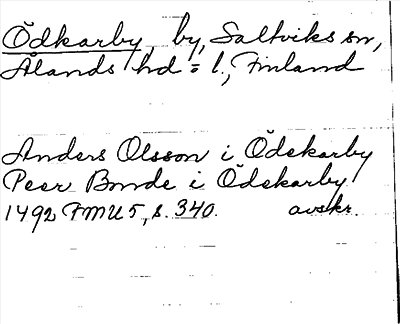 Ödkarby, by, Saltviks sn,
Ålands hd = l., Finland
Anders Olsson i Ödekarby
Peer Bonde i Ödekarby
1492 FMU 5, s. 340. avskr.